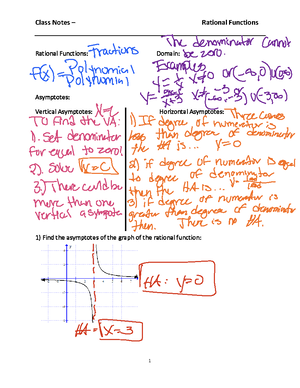 Class Notes – Rational Functions
The denominator cannot
be zero.
Rational Functions: Fractions
Domain:
f(x) = Polynomial
Polynomial
Examples
Asymptotes:
Vertical Asymptotes:
To find the VA:
1). Set denominator
equal to zero!
2). Solve x=c
3) There could be
more than one
vertical asymptote
Horizontal Asymptotes: Three cases
1) If degree of numerator is
less than degree of denominator
the HA is... y=0
2) if degree of numerator is equal
to degree of denominator
then the HA is... y=
3) if degree of numerator is
greater than degree of denominator
then. There is no HA.
1) Find the asymptotes of the graph of the rational function:
HA: y=0
x=3
1